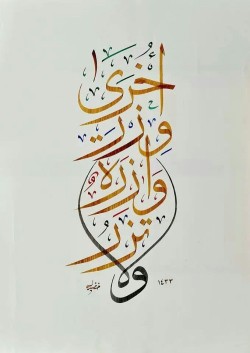 ولا
تزر
وازرة
وزر
أخرى
١٤٣٣